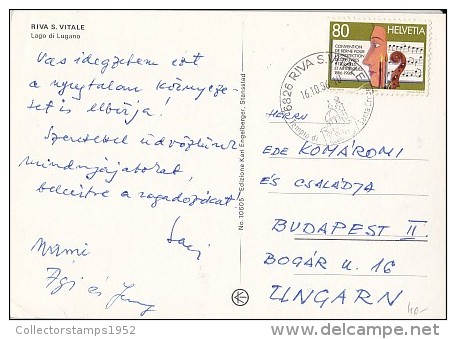 RIVA S. VITALE
Lago di Lugano
Vas idegzetem ezt
a nyugtalan környeze-
set is elbírja!
Szeretettel üdvözlünk
mindnyájatokat,
beleértve a ragadozókat!
Laci
Mami
Ági és
No. 10606 - Edizione Karl Engelberger, Stansstad
80 HELVETIA
CONVENTION
DE BERNE POUR
LA PROTECTION
DES ŒUVRES
LITTÉRAIRES
ET ARTISTIQUES
1886-1986
6826 RIVA S. VITALE
16.10.86
Tempio di
HERRN
EDE KOMÁROMI
ÉS CSALÁDJA
BUDAPEST II
BOGÁR U. 16
UNGARN
40-
Collectorstamps1952
http://www.delcampe.net